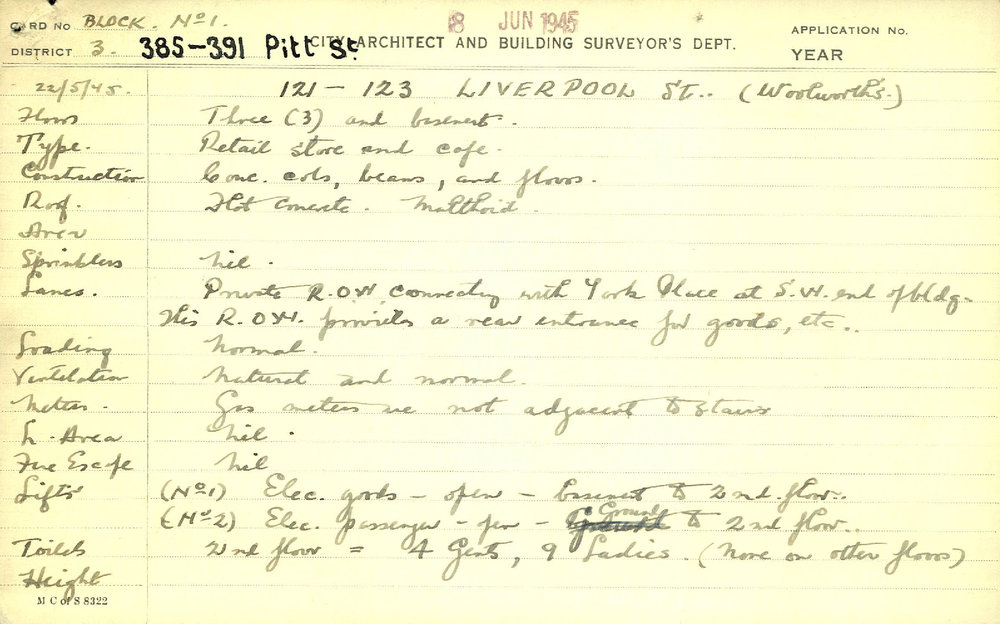 CARD No BLOCK. No 1. 8 JUN 1945 APPLICATION No.
DISTRICT 3. 385-391 Pitt St. CITY ARCHITECT AND BUILDING SURVEYOR'S DEPT. YEAR
22/5/45. 121 - 123 LIVERPOOL St.. (Woolworth's.)
Floors Three (3) and basement.
Type. Retail store and cafe.
Construction Conc. cols, beams, and floors.
Roof. Flat concrete. Malthoid.
Area
Sprinklers Nil.
Lanes. Private R.O.W. connecting with York Place at S.W. end of bldg.
This R.O.W. provides a rear entrance for goods, etc..
Loading Normal.
Ventilation Natural and normal.
Meters. Gas meters are not adjacent to stairs
L. Area Nil.
Fire Escape Nil
Lifts (No 1) Elec. goods - open - basement to 2nd. floor.
(No 2) Elec. passenger - - Ground to 2nd floor.
Toilets 2nd floor = 4 Gents, 9 Ladies. (None on other floors)
Height
M C of S 8322